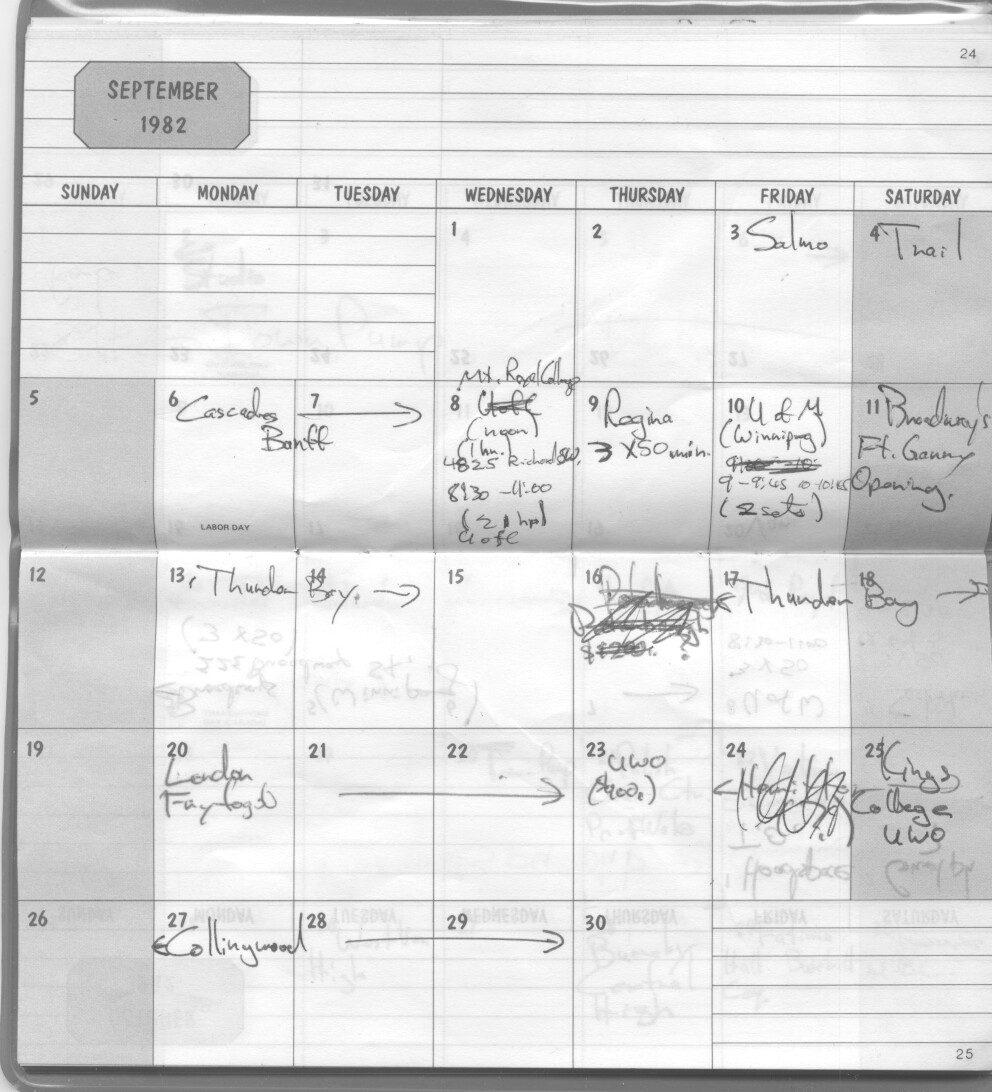 24
SEPTEMBER
1982
SUNDAY MONDAY TUESDAY WEDNESDAY THURSDAY FRIDAY SATURDAY
1
2
3 Salmo
4 Trail
5
6 Cascades
Banff
LABOR DAY
7
Mt. Royal College
8
(noon)
(1 hr.)
4825 Richard
8:30 - 9:00
U of C
9
Regina
3 X 50 min.
10 U of M
(Winnipeg)
9 - 9:45 10-10:45
(2 sets)
11 Broadway's
Ft. Garry
Opening.
12
13 Thunder
14 Bay.
15
16
?
17 Thunder
18 Bay
19
20
London
Fryfogel
21
22
23
UWO
($400.)
24
25 Kings
College
UWO
26
27
Collingwood
28
29
30
25